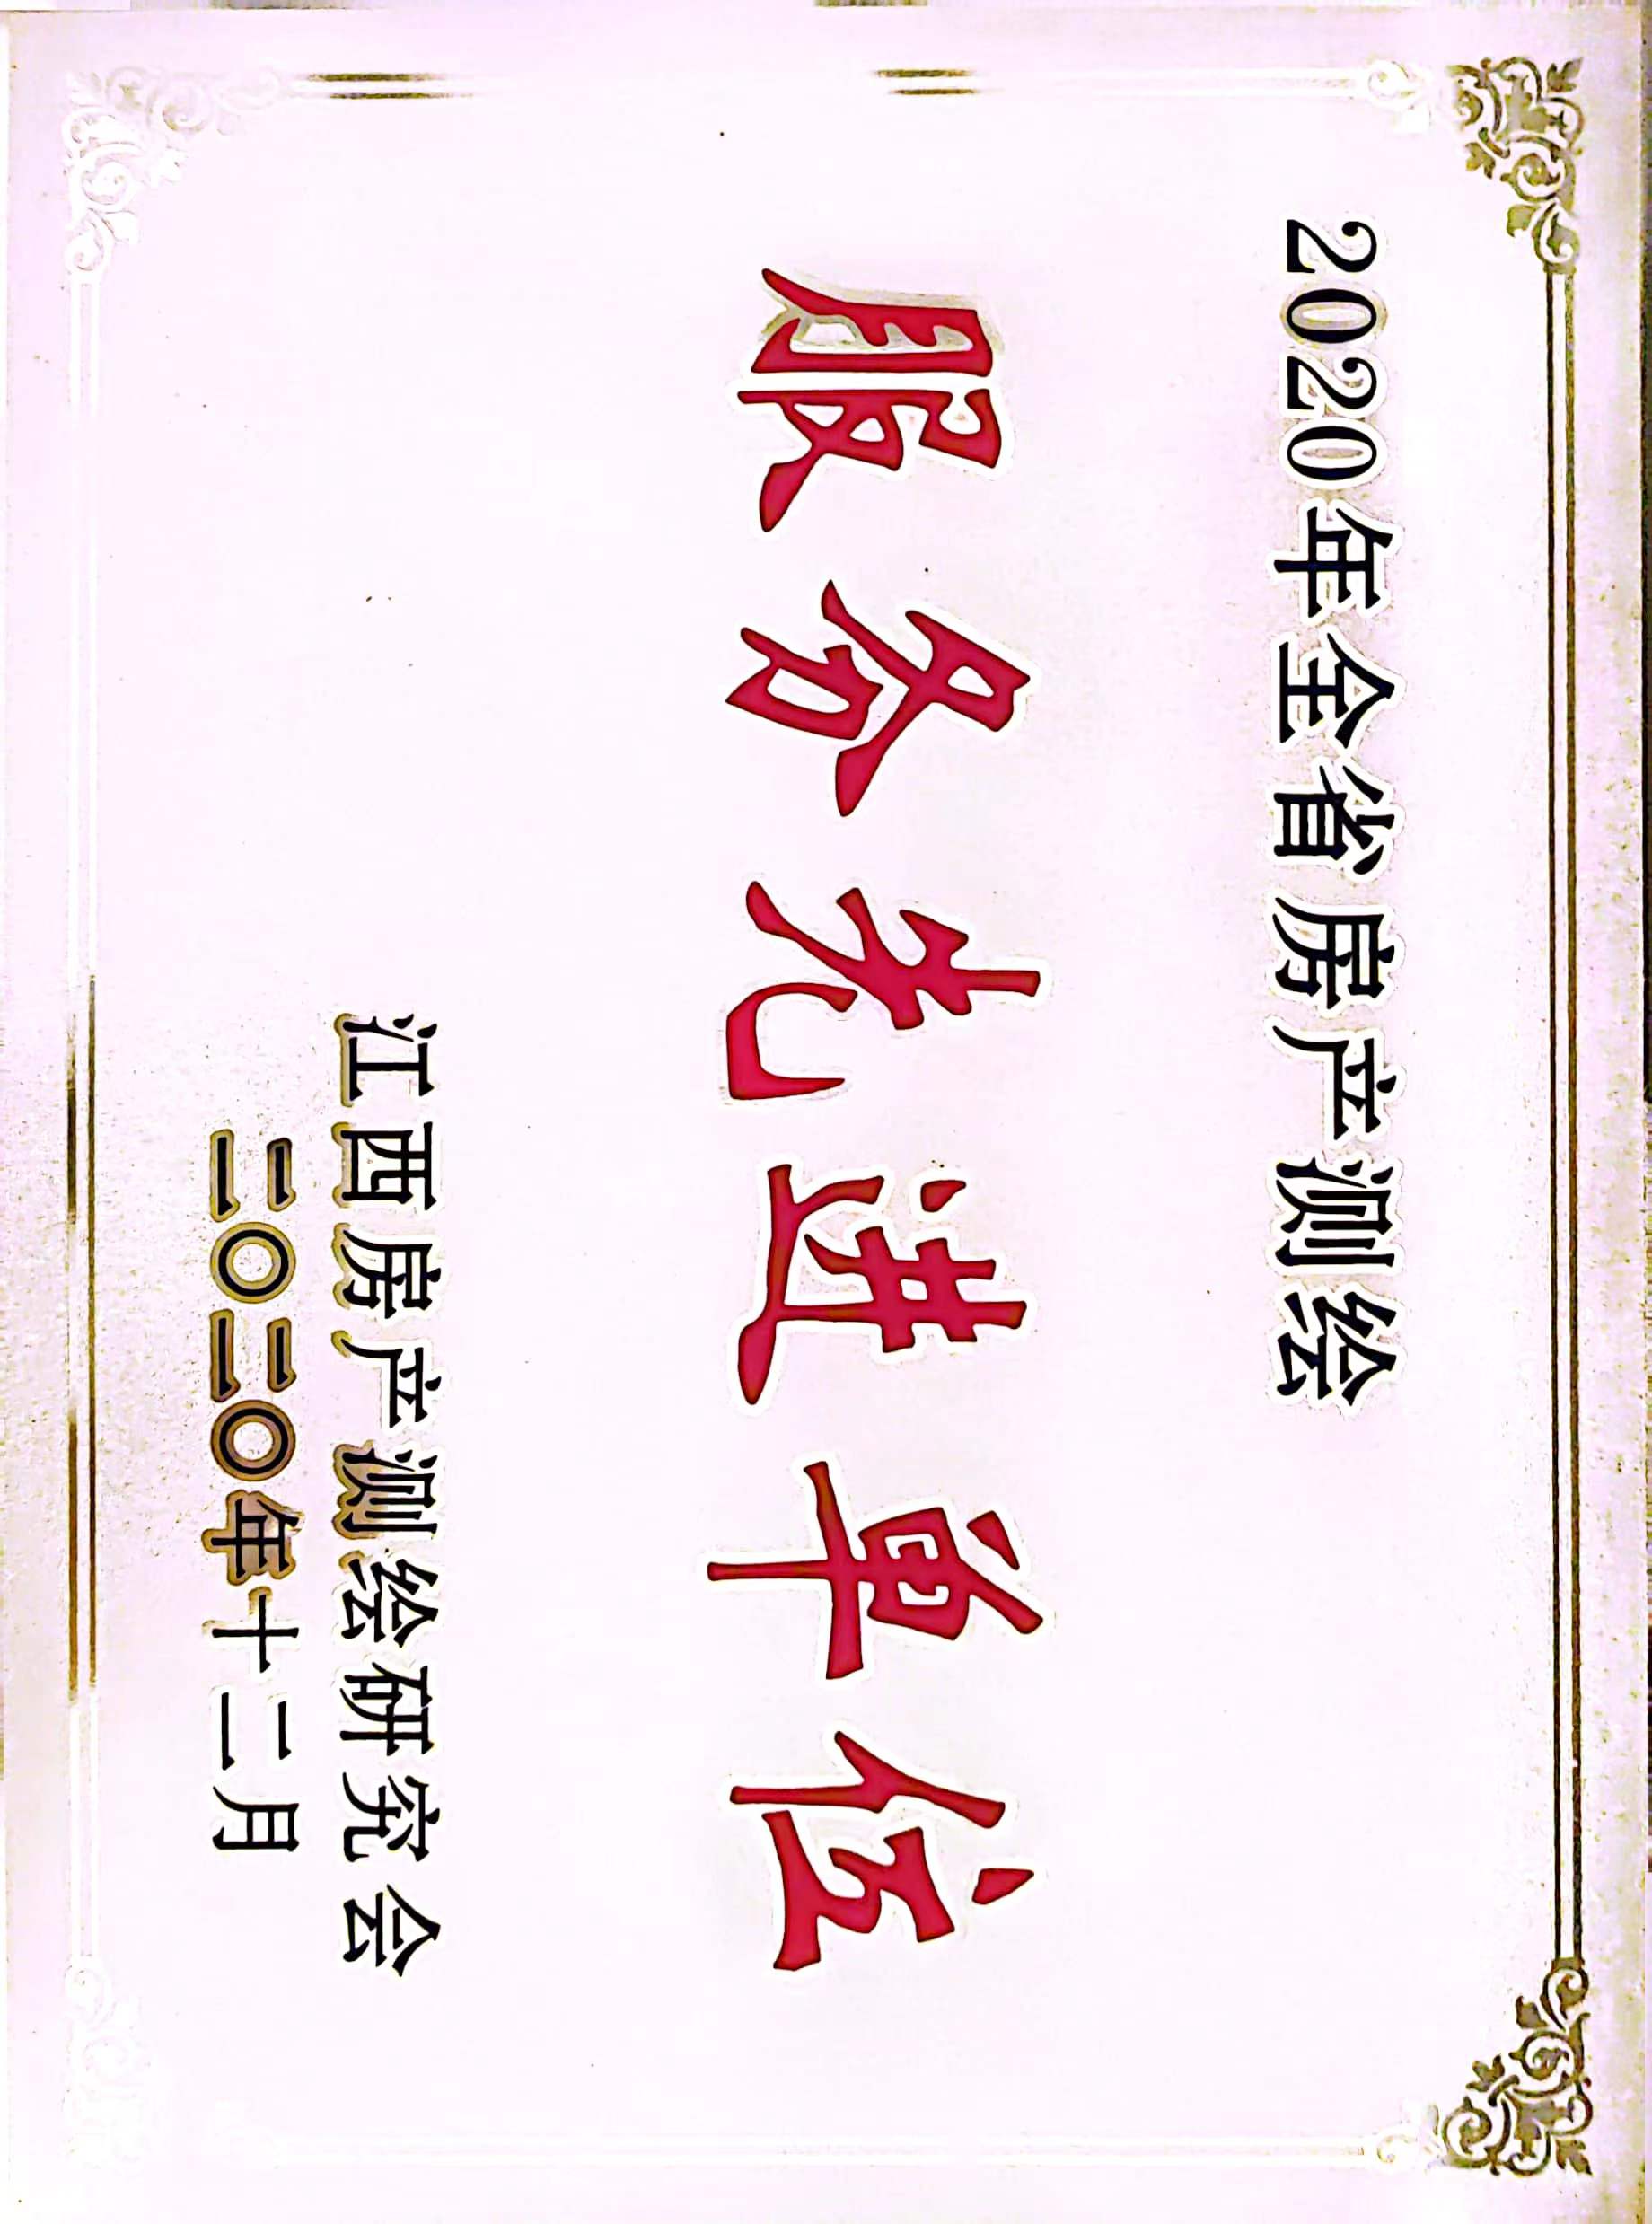 2020年全省房产测绘
服务先进单位
江西房产测绘研究会
二〇二〇年十二月